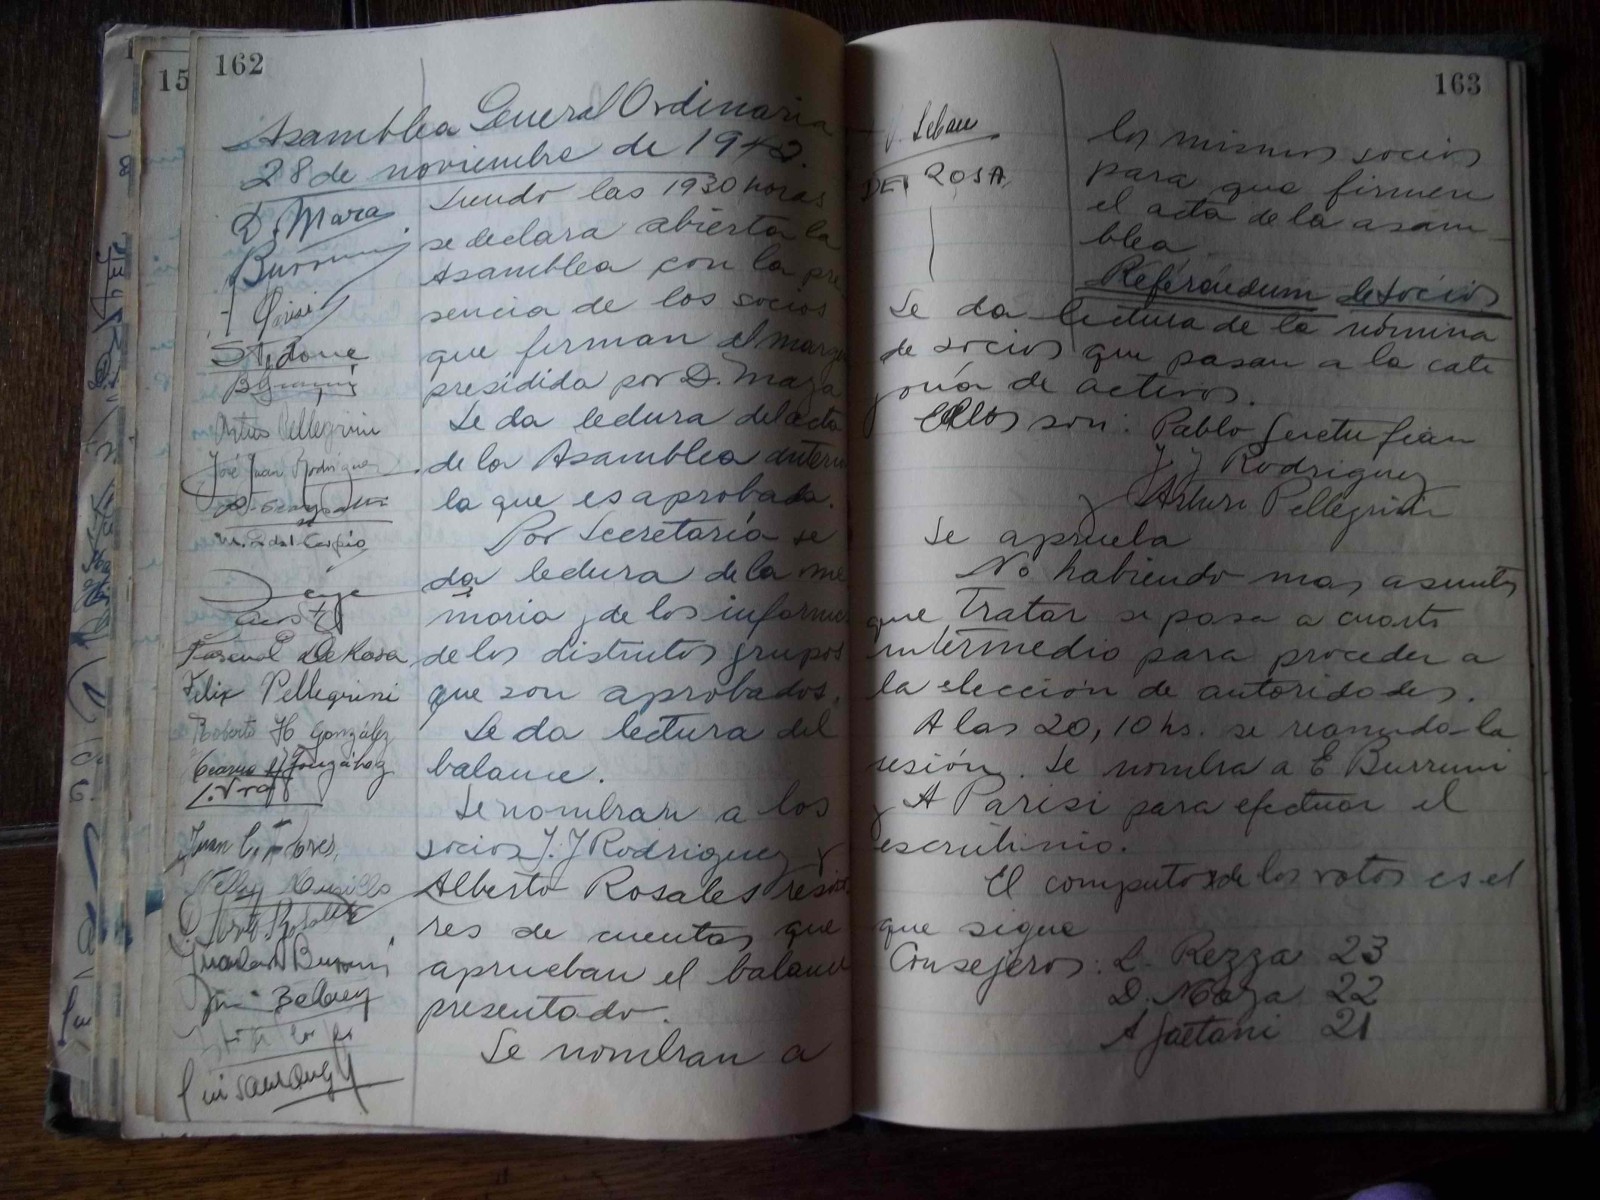 162
15
Asamblea General Ordinaria
28 de noviembre de 1942.
Siendo las 1930 horas
se declara abierta la
Asamblea con la pre
sencia de los socios
que firman al margen
presidida por D. Maza
Se da lectura del acta
de la Asamblea anterior
la que es aprobada.
Por Secretaría se
da lectura de la me
moria y de los informes
de los distintos grupos
que son aprobados.
Se da lectura del
balance.
Se nombran a los
socios J. J Rodriguez y
Alberto Rosales reviso
res de cuentas que
aprueban el balance
presentado.
Se nombran a
D. Maza
Burruni
Parisi
Arturo Pellegrini
José Juan Rodriguez
del Carpio
Pascual De Rosa
Felix Pellegrini
Roberto H González
Juan C.
Nelly
Burruni
163
DE ROSA
los mismos socios
para que firmen
el acta de la asam-
blea
Referéndum de socios
Se da lectura de la nómina
de socios que pasan a la cate
goría de activos.
Ellos son: Pablo
J J Rodriguez
y Arturo Pellegrini
Se aprueba
No habiendo mas asuntos
que tratar se pasa a cuarto
intermedio para proceder a
la elección de autoridades.
A las 20,10 hs. se reanuda la
sesión. Se nombra a E Burruni
y A Parisi para efectuar el
escrutinio.
El computo de los votos es el
que sigue
Consejeros: L. Rezza 23
D. Maza 22
A Gaetani 21